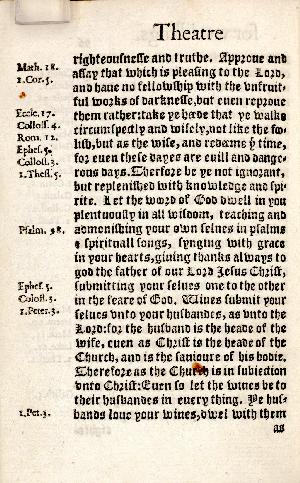 Theatre
righteousnesse and truthe. Approue and
Math. 18.
assay that which is pleasing to the Lord,
1. Cor. 5.
and haue no fellowship with the vnfruit-
ful works of darknesse, but euen reproue
Eccle. 17.
them rather: take ye hede that ye walke
Coloss. 4.
circumspectly and wisely, not like the foo-
Rom. 12.
lish, but as the wise, and redeme yͤ time,
Ephes. 5.
for euen these dayes are euill and dange-
Coloss. 3.
rous days. Therfore be ye not ignorant,
1. Thess. 5.
but replenished with knowledge and spi-
rite. Let the word of God dwell in you
plentuously in all wisdom, teaching and
Psalm. 98.
admonishing your own selues in psalms
& spirituall songs, synging with grace
in your hearts, giuing thanks always to
god the father of our Lord Jesus Christ,
Ephes. 5.
submitting your selues one to the other
Colos. 3.
in the feare of God. Wiues submit your
1. Peter. 3.
selues vnto your husbandes, as vnto the
Lord: for the husband is the heade of the
wife, euen as Christ is the heade of the
Church, and is the sauioure of his bodie.
Therefore as the Church is in subiection
vnto Christ: Euen so let the wiues be to
their husbandes in euery thing. Ye hus-
1. Pet. 3.
bands loue your wiues, dwel with them
as